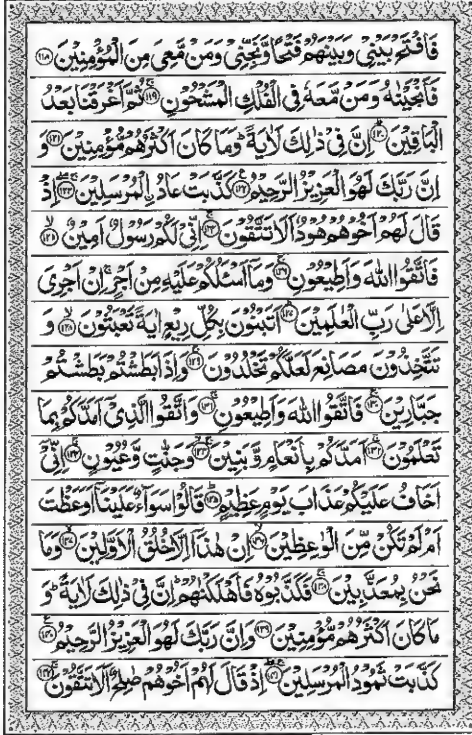 فَافْتَحْ بَيْنِيْ وَبَيْنَهُمْ فَتْحًا وَّنَجِّنِيْ وَمَنْ مَّعِيَ مِنَ الْمُؤْمِنِيْنَ ﴿۱۱۸﴾
فَاَنْجَيْنٰهُ وَمَنْ مَّعَهٗ فِي الْفُلْكِ الْمَشْحُوْنِ ﴿۱۱۹﴾ ثُمَّ اَغْرَقْنَا بَعْدُ
الْبٰقِيْنَ ﴿۱۲۰﴾ اِنَّ فِيْ ذٰلِكَ لَاٰيَةً ؕ وَمَا كَانَ اَكْثَرُهُمْ مُّؤْمِنِيْنَ ﴿۱۲۱﴾ وَ
اِنَّ رَبَّكَ لَهُوَ الْعَزِيْزُ الرَّحِيْمُ ﴿۱۲۲﴾ كَذَّبَتْ عَادُ ۨالْمُرْسَلِيْنَ ﴿۱۲۳﴾ اِذْ
قَالَ لَهُمْ اَخُوْهُمْ هُوْدٌ اَلَا تَتَّقُوْنَ ﴿۱۲۴﴾ اِنِّيْ لَكُمْ رَسُوْلٌ اَمِيْنٌ ﴿۱۲۵﴾
فَاتَّقُوا اللّٰهَ وَاَطِيْعُوْنِ ﴿۱۲۶﴾ وَمَاۤ اَسْئَلُكُمْ عَلَيْهِ مِنْ اَجْرٍ ۚ اِنْ اَجْرِيَ
اِلَّا عَلٰى رَبِّ الْعٰلَمِيْنَ ﴿۱۲۷﴾ اَتَبْنُوْنَ بِكُلِّ رِيْعٍ اٰيَةً تَعْبَثُوْنَ ﴿۱۲۸﴾ وَ
تَتَّخِذُوْنَ مَصَانِعَ لَعَلَّكُمْ تَخْلُدُوْنَ ﴿۱۲۹﴾ وَاِذَا بَطَشْتُمْ بَطَشْتُمْ
جَبَّارِيْنَ ﴿۱۳۰﴾ فَاتَّقُوا اللّٰهَ وَاَطِيْعُوْنِ ﴿۱۳۱﴾ وَاتَّقُوا الَّذِيْۤ اَمَدَّكُمْ بِمَا
تَعْلَمُوْنَ ﴿۱۳۲﴾ اَمَدَّكُمْ بِاَنْعَامٍ وَّبَنِيْنَ ﴿۱۳۳﴾ وَجَنّٰتٍ وَّعُيُوْنٍ ﴿۱۳۴﴾ اِنِّيْۤ
اَخَافُ عَلَيْكُمْ عَذَابَ يَوْمٍ عَظِيْمٍ ﴿۱۳۵﴾ قَالُوْا سَوَآءٌ عَلَيْنَاۤ اَوَعَظْتَ
اَمْ لَمْ تَكُنْ مِّنَ الْوٰعِظِيْنَ ﴿۱۳۶﴾ اِنْ هٰذَاۤ اِلَّا خُلُقُ الْاَوَّلِيْنَ ﴿۱۳۷﴾ وَمَا
نَحْنُ بِمُعَذَّبِيْنَ ﴿۱۳۸﴾ فَكَذَّبُوْهُ فَاَهْلَكْنٰهُمْ ؕ اِنَّ فِيْ ذٰلِكَ لَاٰيَةً ؕ وَ
مَا كَانَ اَكْثَرُهُمْ مُّؤْمِنِيْنَ ﴿۱۳۹﴾ وَاِنَّ رَبَّكَ لَهُوَ الْعَزِيْزُ الرَّحِيْمُ ﴿۱۴۰﴾
كَذَّبَتْ ثَمُوْدُ الْمُرْسَلِيْنَ ﴿۱۴۱﴾ اِذْ قَالَ لَهُمْ اَخُوْهُمْ صٰلِحٌ اَلَا تَتَّقُوْنَ ﴿۱۴۲﴾